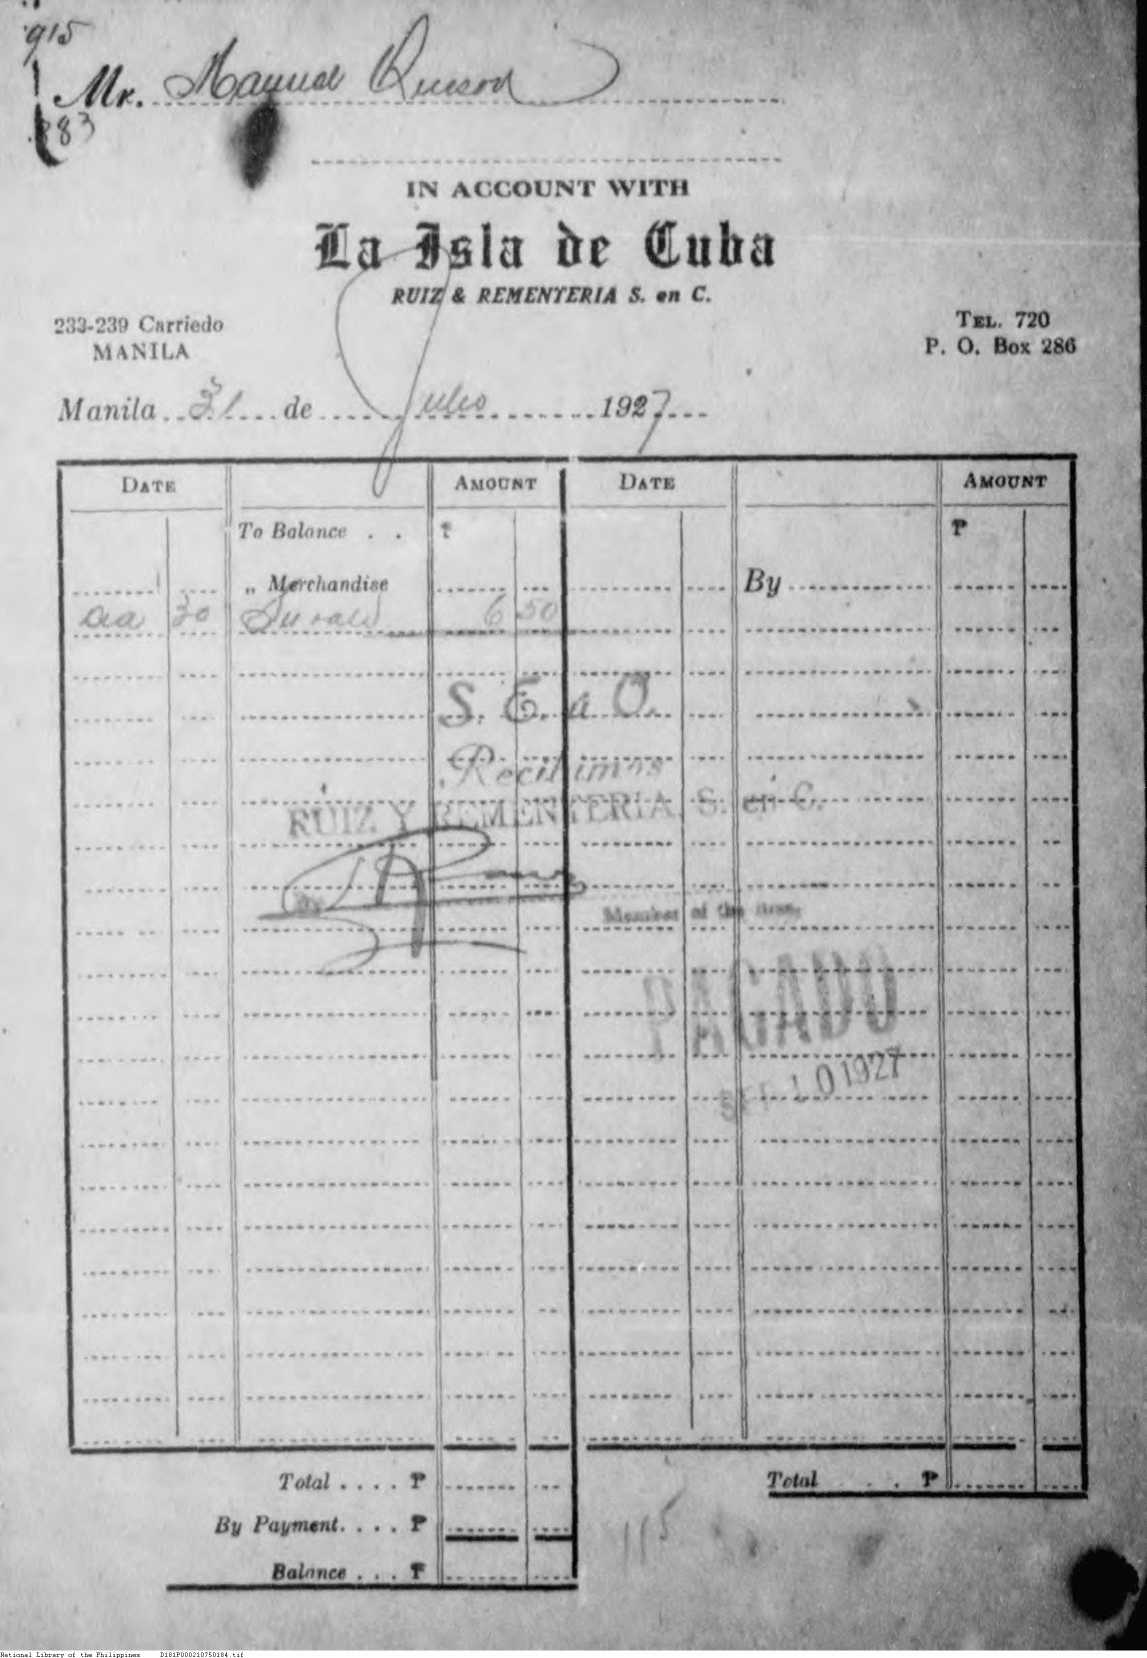 915
Mr. Manuel Quezon
83
IN ACCOUNT WITH
La Isla de Cuba
RUIZ & REMENTERIA S. en C.
233-239 Carriedo
MANILA
TEL. 720
P. O. Box 286
Manila 31 de Julio 1927
DATE AMOUNT DATE AMOUNT
To Balance . . ₱ ₱
„ Merchandise By
30 6 50
S. E. a O.
Recibimos
RUIZ Y REMENTERIA, S. en C.
By
Member of the firm.
PAGADO
SEP 10 1927
Total . . . . ₱ Total . . ₱
By Payment. . . . ₱
Balance . . . ₱
115
National Library of the Philippines D181P000210750184.tif